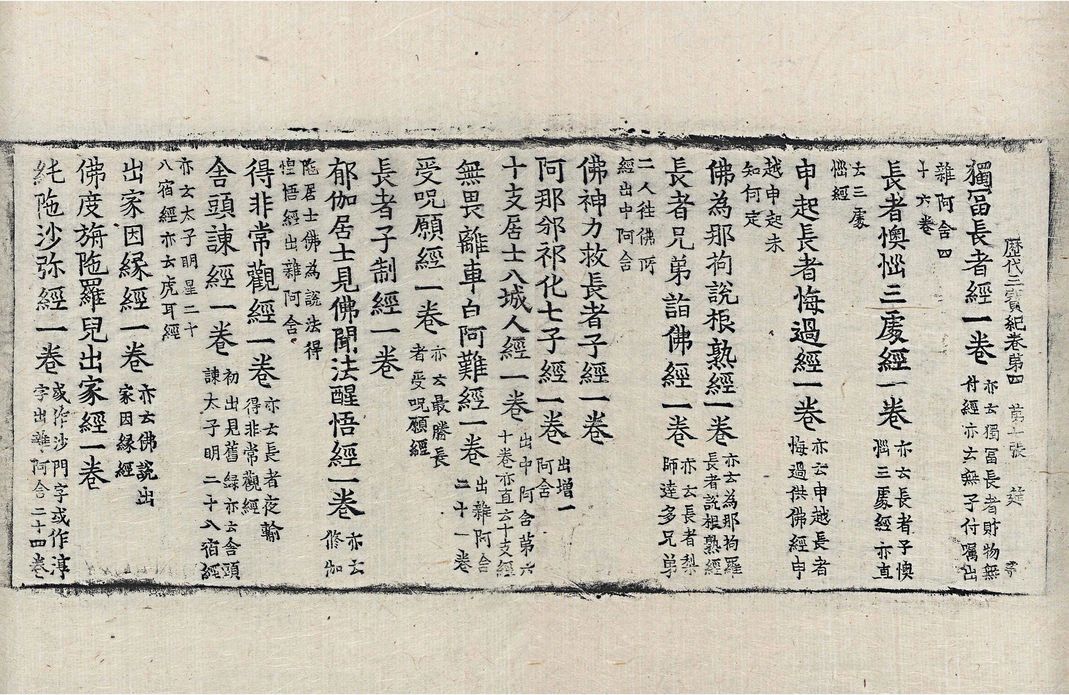 歷代三寶紀卷第四 第七張 筵
獨冨長者經一卷
亦云獨冨長者財物無
付經亦云無子付囑出
雜阿含四
十六卷
長者懊惱三處經一卷
亦云長者子懊
惱三處經亦直
云三處
惱經
申起長者悔過經一卷
亦云申越長者
悔過供佛經申
越申起未
知何定
佛為那拘說根熟經一卷
亦云為那拘羅
長者說根熟經
長者兄弟詣佛經一卷
亦云長者梨
師達多兄弟
二人往佛所
經出中阿含
佛神力救長者子經一卷
阿那邠祁化七子經一卷
出增一
阿含
十支居士八城人經一卷
出中阿含第六
十卷亦直云十支經
無畏離車白阿難經一卷
出雜阿含
二十一卷
受呪願經一卷
亦云最勝長
者受呪願經
長者子制經一卷
郁伽居士見佛聞法醒悟經一卷
亦云
修伽
陁居士佛為說法得
惶悟經出雜阿含
得非常觀經一卷
亦云長者夜輸
得非常觀經
舍頭諫經一卷
初出見舊錄亦云舍頭
諫太子明二十八宿經
亦云太子明星二十
八宿經亦云虎耳經
出家因緣經一卷
亦云佛說出
家因緣經
佛度旃陁羅兒出家經一卷
純陁沙弥經一卷
或作沙門字或作淳
字出雜阿含二十四卷